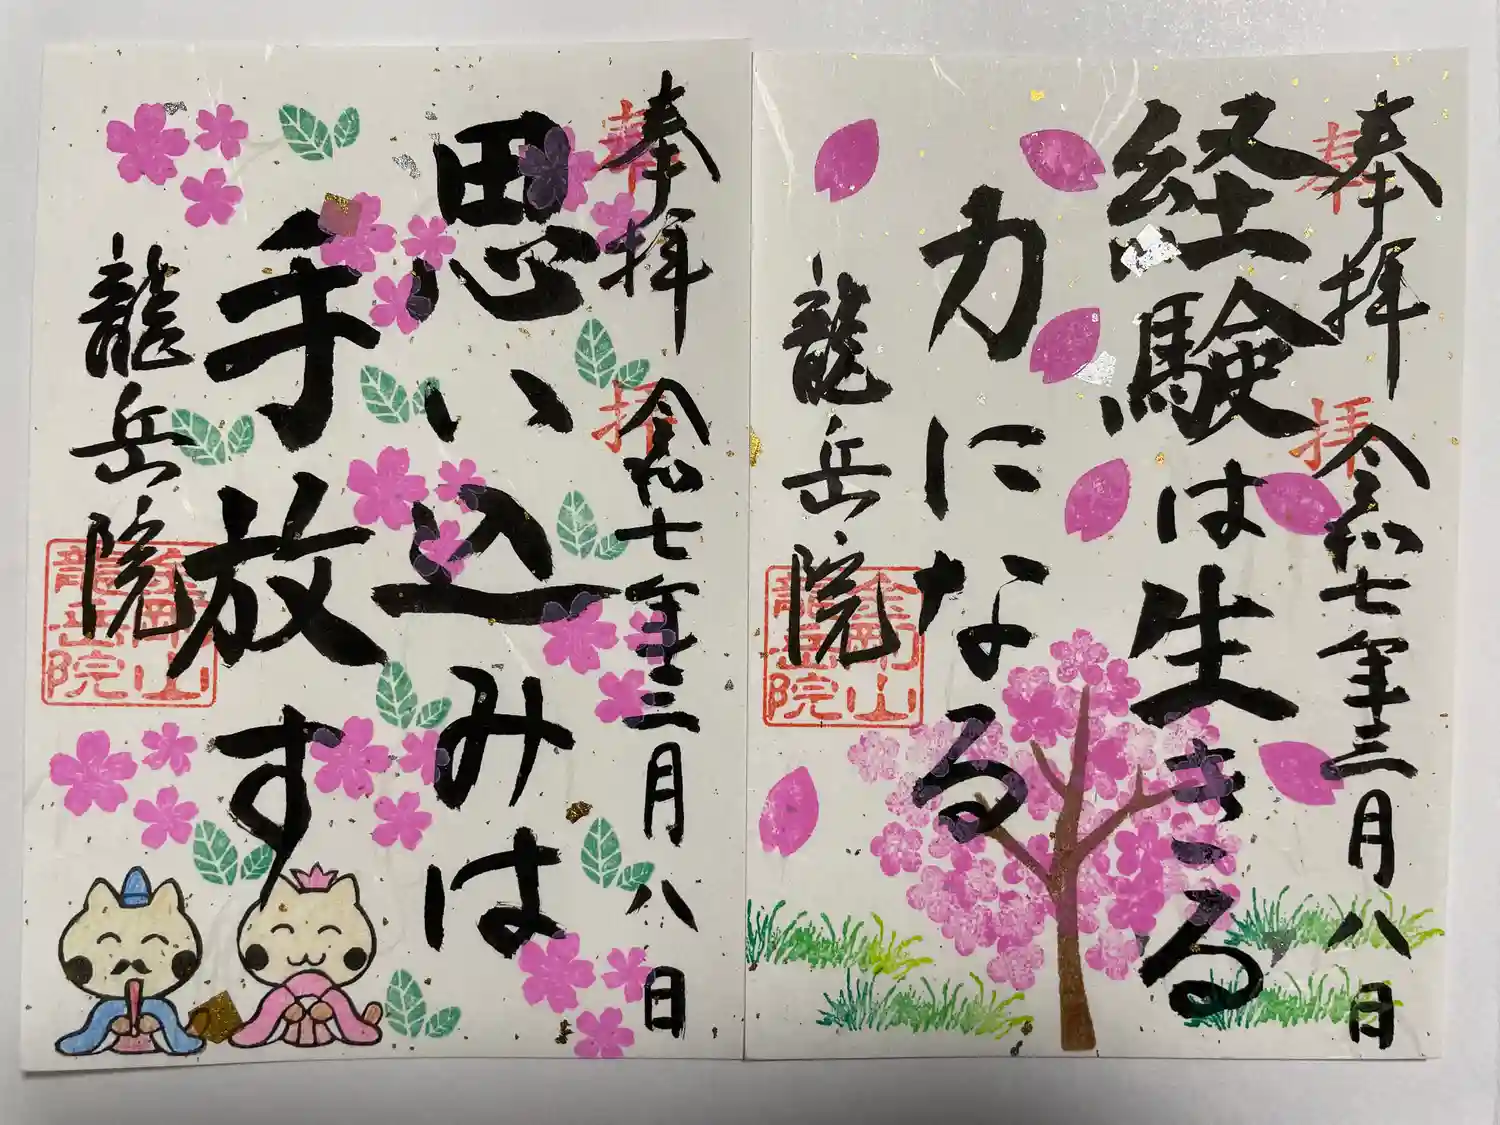 奉拝
令和七年三月八日
経験は生きる
力になる
龍岳院
奉拝
金剛山
龍岳院
奉拝
令和七年三月八日
思い込みは
手放す
龍岳院
奉拝
金剛山
龍岳院